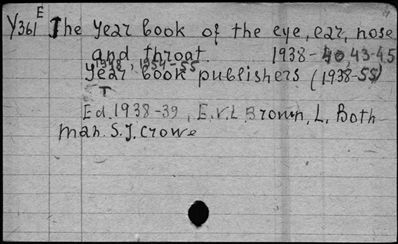 E
Y361 The Year Book of the eye, ear, nose
and throat. 1938-40, 43-45
1948, 1954-55
year book publishers (1938-55)
T
Ed. 1938-39, E.V.L. Brown, L. Both
man. S.J. Crowe